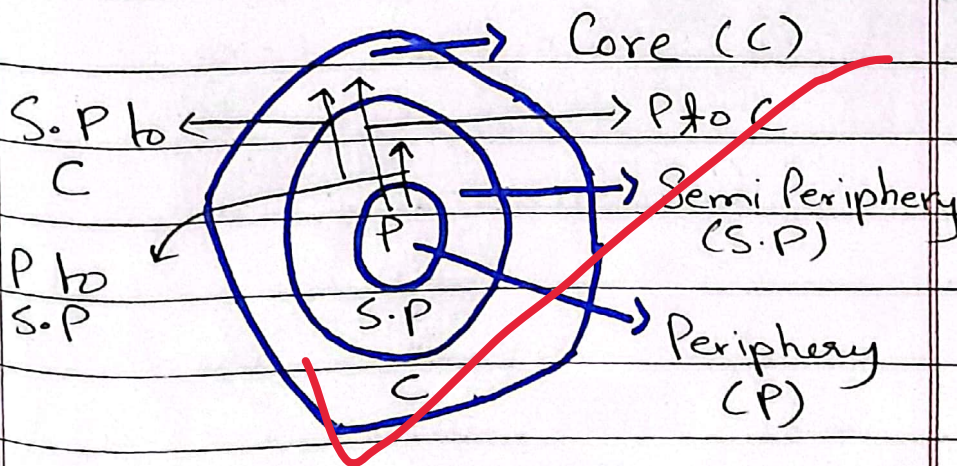 Core (C)
S.P to
C
P to C
Semi Periphery
(S.P)
P
P to
S.P
S.P
Periphery
(P)
C